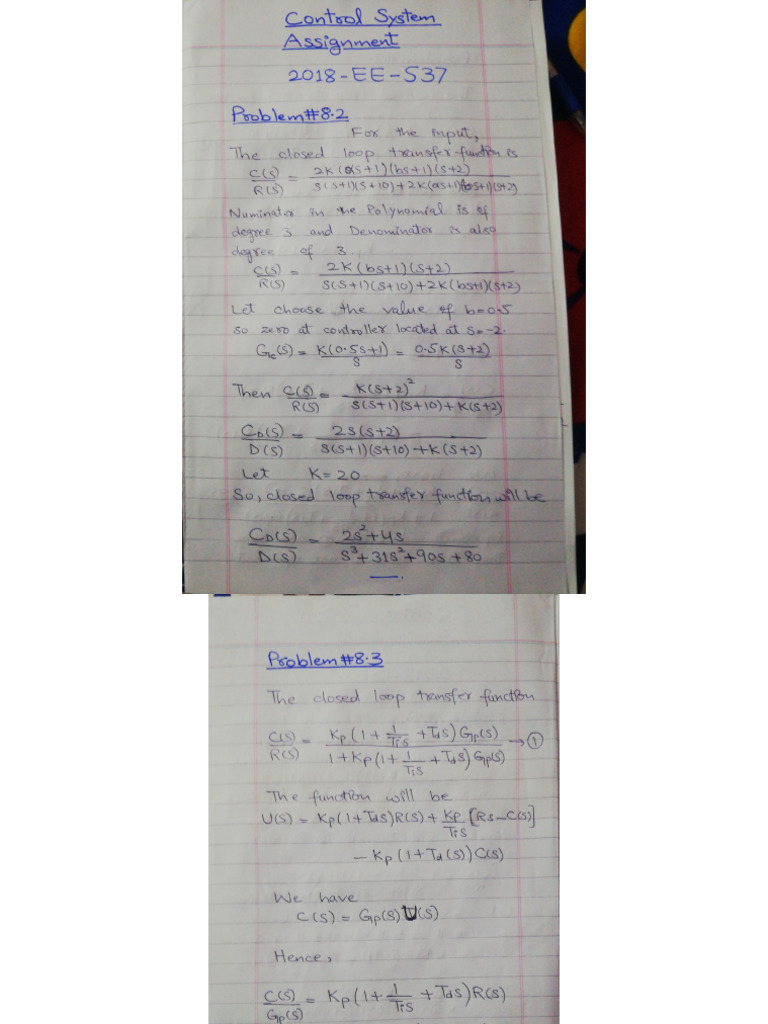 Control System
Assignment
2018-EE-537
Problem#8.2
For the input,
The closed loop transfer function is
C(s)/R(s) = 2K(as+1)(bs+1)(s+2) / s(s+1)(s+10)+2K(as+1)(bs+1)(s+2)
Numinator in the Polynomial is of
degree 3 and Denominator is also
degree of 3.
C(s)/R(s) = 2K(bs+1)(s+2) / s(s+1)(s+10)+2K(bs+1)(s+2)
Let choose the value of b=0.5
so zero at controller located at s=-2.
Gc(s) = K(0.5s+1)/s = 0.5K(s+2)/s
Then C(s)/R(s) = K(s+2)² / s(s+1)(s+10)+K(s+2)
CD(s)/D(s) = 2s(s+2) / s(s+1)(s+10)+K(s+2)
Let K=20
So, closed loop transfer function will be
CD(s)/D(s) = 2s²+4s / s³+31s²+90s+80
Problem#8.3
The closed loop transfer function
C(s)/R(s) = Kp(1+1/Tis+Tds)Gp(s) / 1+Kp(1+1/Tis+Tds)Gp(s) → ①
The function will be
U(s) = Kp(1+Tds)R(s)+Kp/Tis[Rs-C(s)]
-Kp(1+Td(s))C(s)
We have
C(s) = Gp(s)U(s)
Hence,
C(s)/Gp(s) = Kp(1+1/Tis+Tds)R(s)